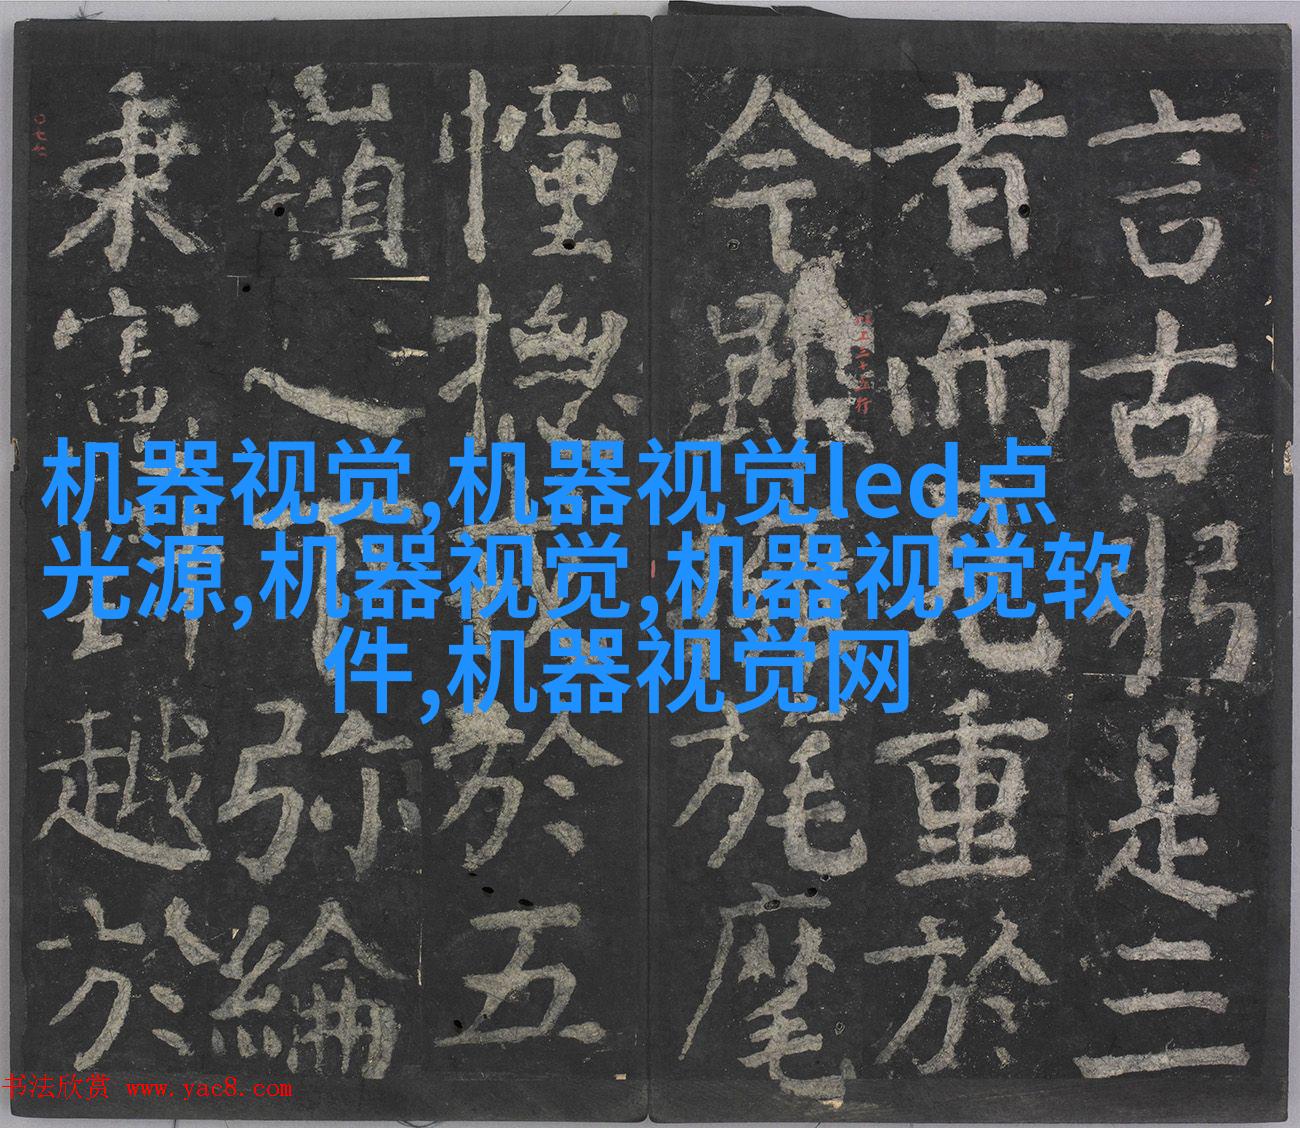 机器视觉,机器视觉led点
光源,机器视觉,机器视觉软
件,机器视觉网
言古是三
者而見重於
今旄麾
憧於五
嶺之下弥綸
秉越於
书法欣赏 www.yac8.com